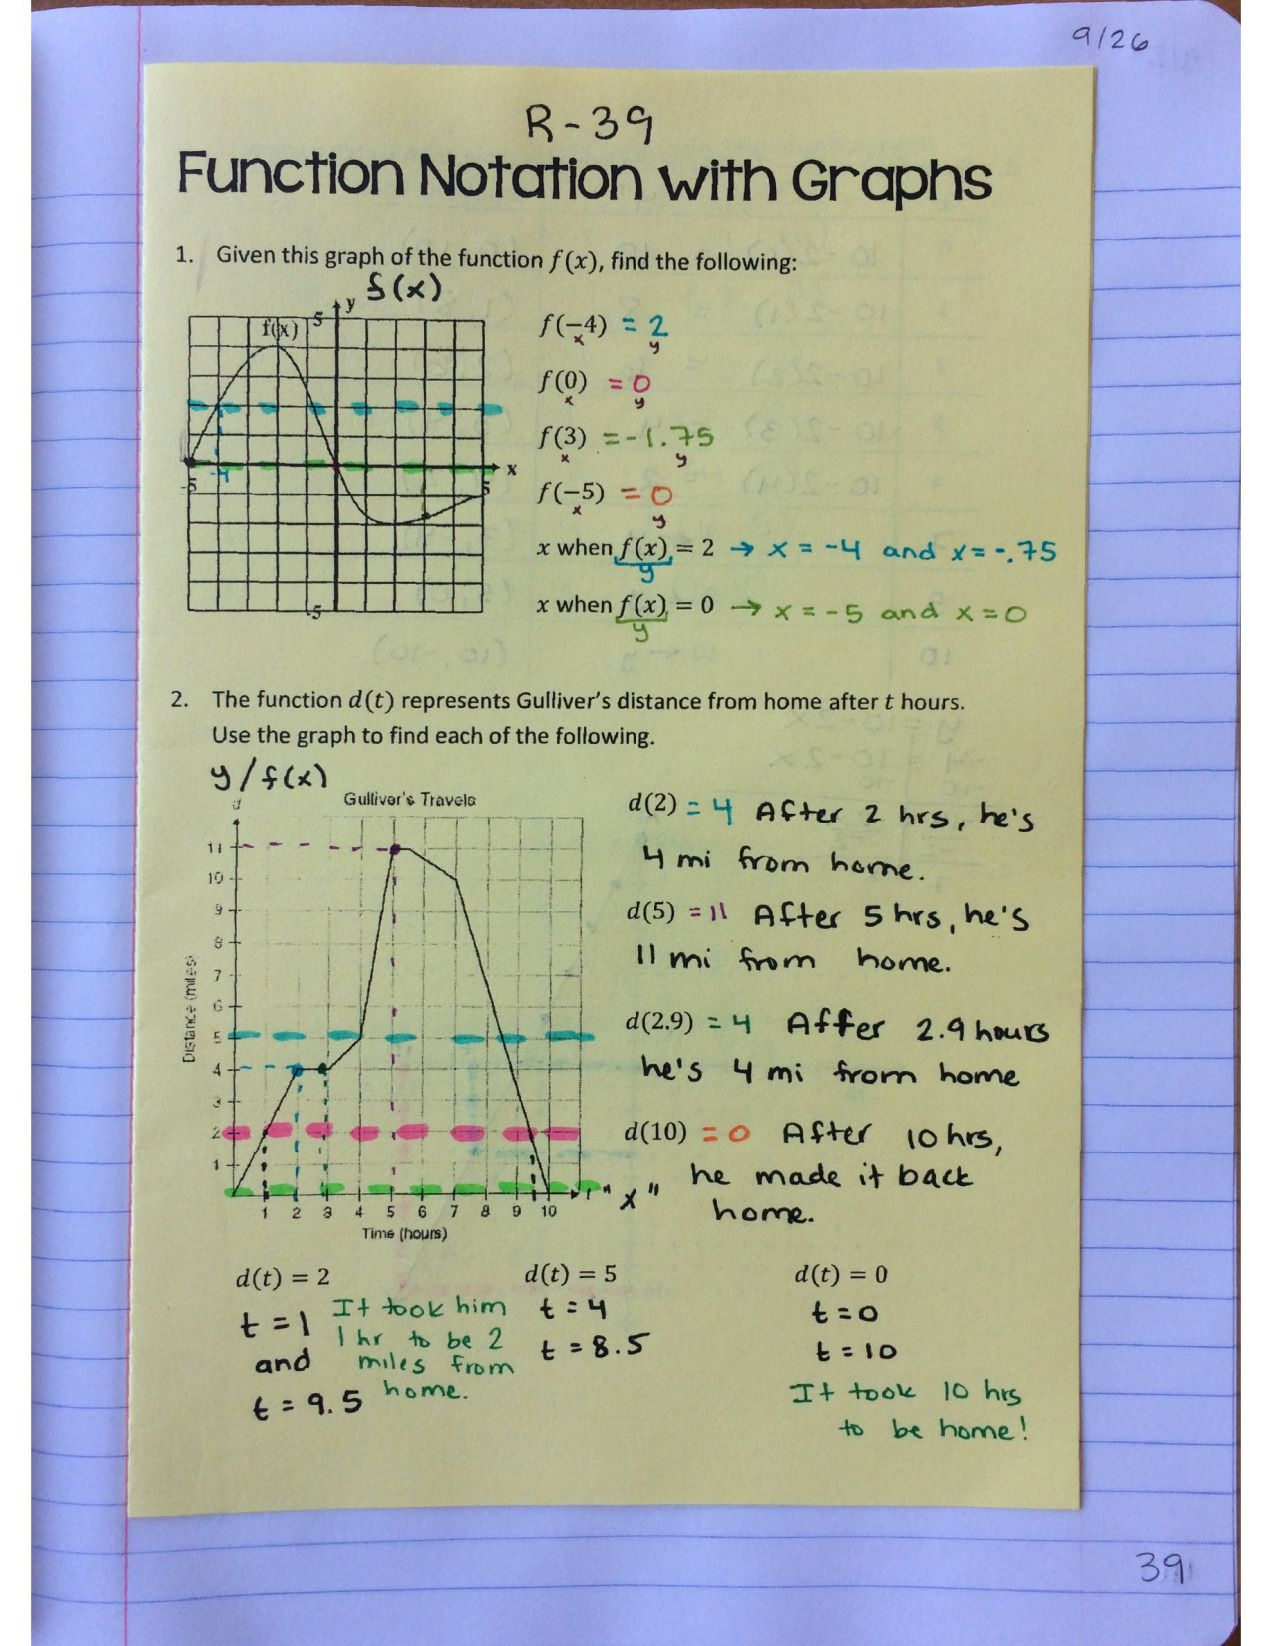 9/26
R-39
Function Notation with Graphs
1. Given this graph of the function f(x), find the following:
f(x)
y
f(x)
5
x
-5
-4
5
-5
f(-4) = 2
x y
f(0) = 0
x y
f(3) = -1.75
x y
f(-5) = 0
x y
x when f(x) = 2 → x = -4 and x = -.75
y
x when f(x) = 0 → x = -5 and x = 0
y
2. The function d(t) represents Gulliver's distance from home after t hours.
Use the graph to find each of the following.
y / f(x)
d
Gulliver's Travels
11
10
9
8
7
6
5
4
3
2
1
Distance (miles)
1 2 3 4 5 6 7 8 9 10
t "x"
Time (hours)
d(2) = 4 After 2 hrs, he's
4 mi from home.
d(5) = 11 After 5 hrs, he's
11 mi from home.
d(2.9) = 4 Affer 2.9 hours
he's 4 mi from home
d(10) = 0 After 10 hrs,
he made it back
home.
d(t) = 2
t = 1
and
t = 9.5
It took him
1 hr to be 2
miles from
home.
d(t) = 5
t = 4
t = 8.5
d(t) = 0
t = 0
t = 10
It took 10 hrs
to be home!
39